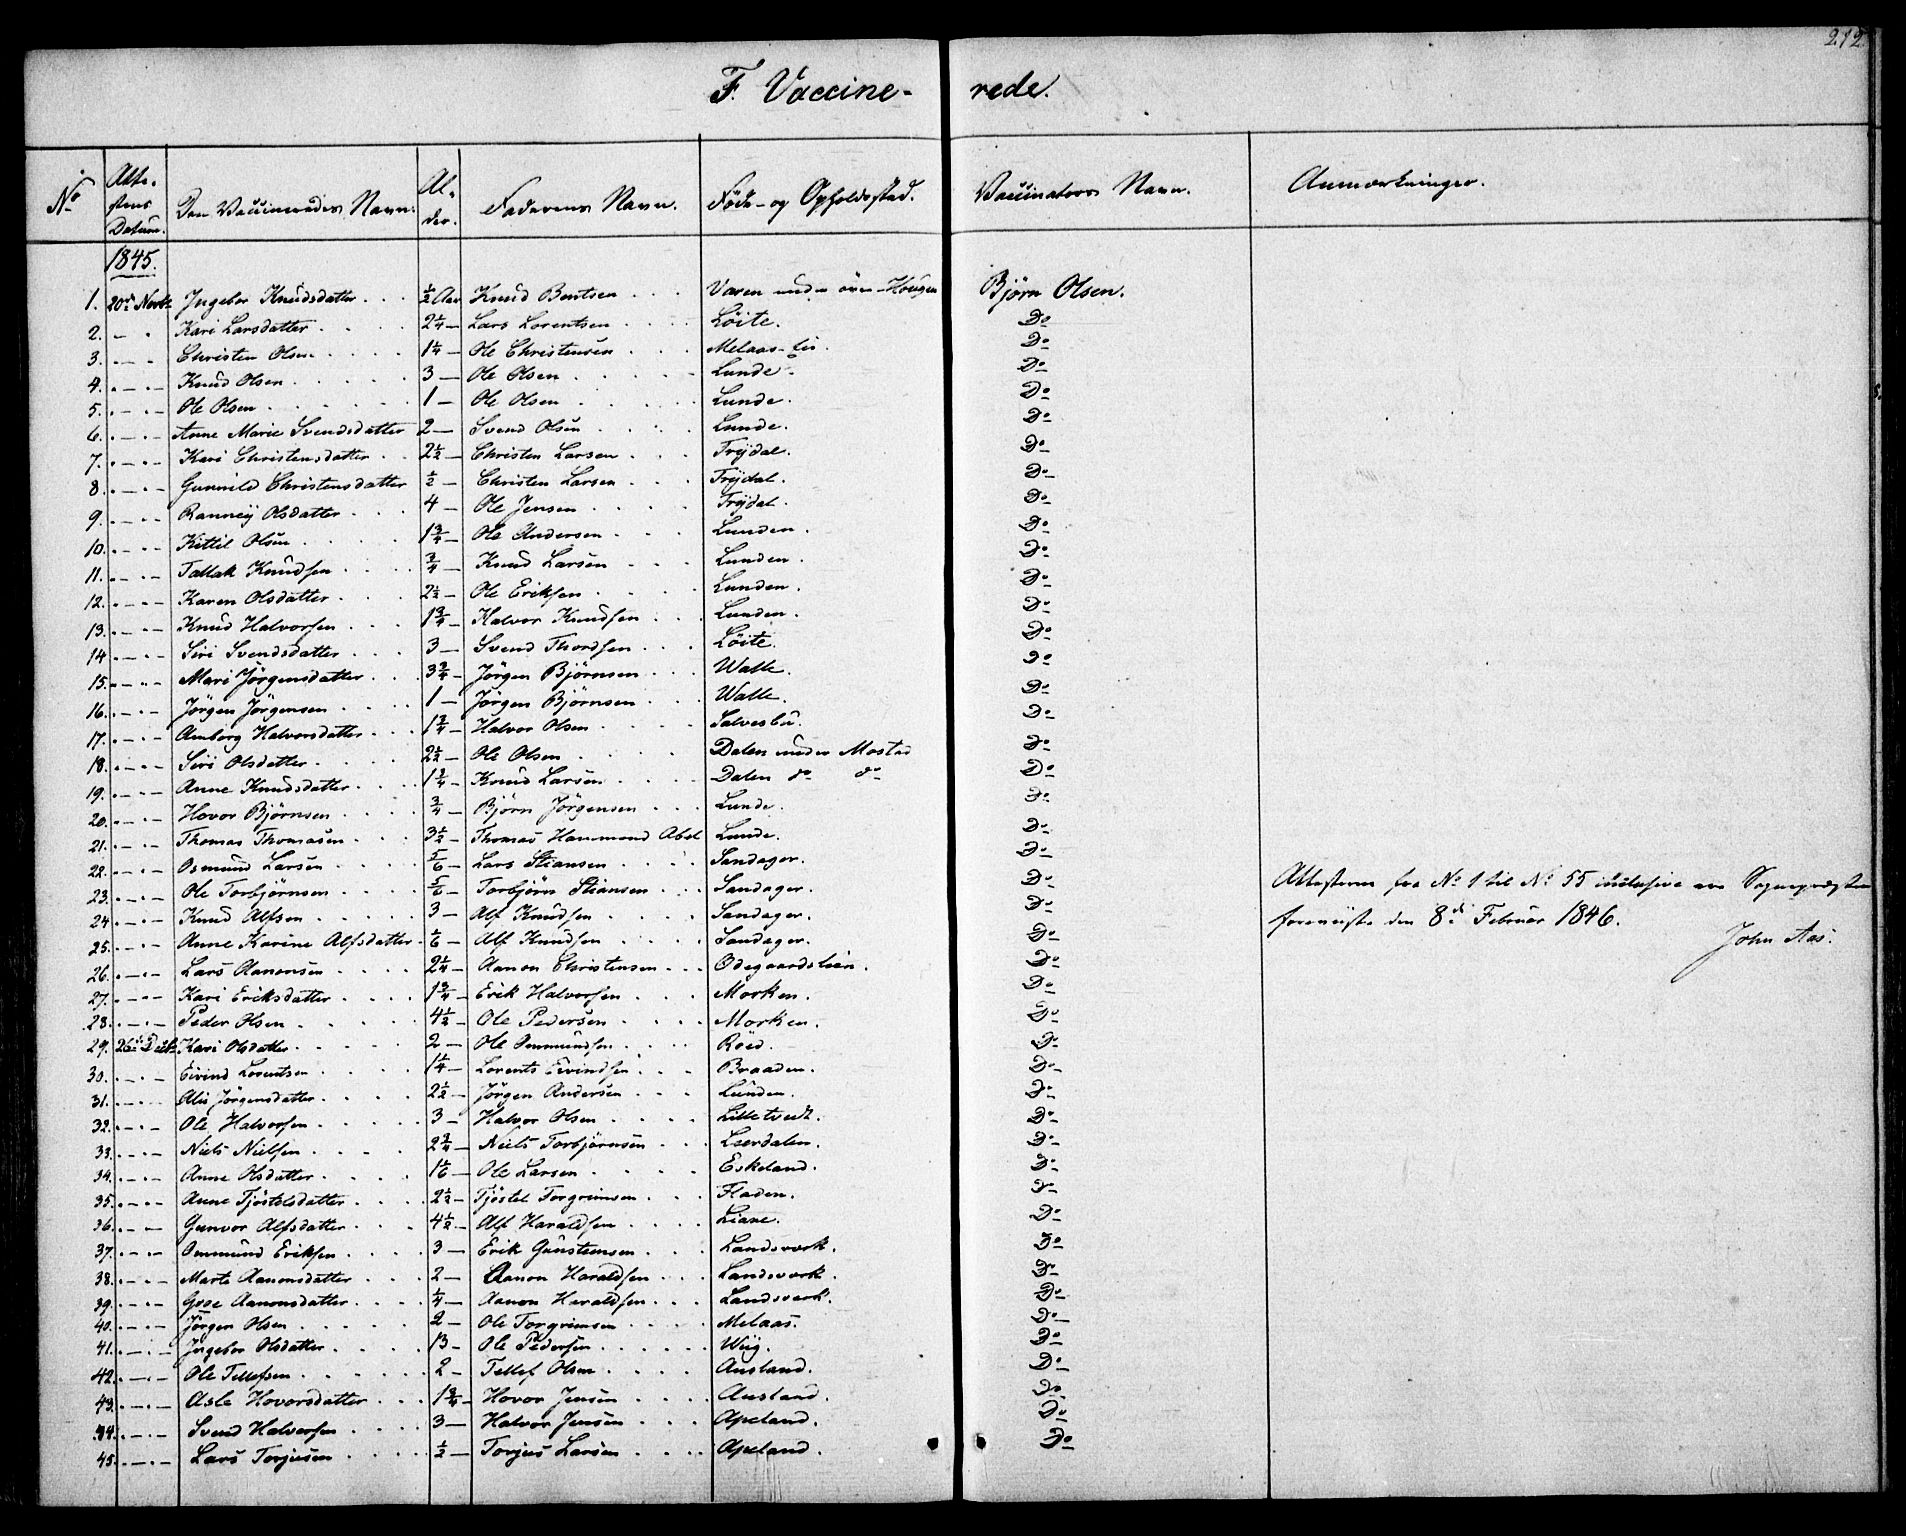 212
F. Vaccine- rede.
No Attestens Datum. Den Vaccineredes Navn. Alder. Faderens Navn. Føde- og Opholdssted. Vaccinateurs Navn. Anmærkninger.
1845.
1. 20de Novbr Ingebor Knudsdatter ½ Aar Knud Bentsen under øvre Hougen Bjørn Olsen.
2. Kari Larsdatter 2¼ Lars Lorentsen Löite. Do
3. Christen Olsen 1¼ Ole Christensen Melaas-lii. Do
4. Knud Olsen 3 Ole Olsen Lunde. Do
5. Ole Olsen 1 Ole Olsen Lunde. Do
6. Anne Marie Svendsdatter 2 Svend Olsen Lunde. Do
7. Kari Christensdatter 2½ Christen Larsen Frÿdal. Do
8. Gunnild Christensdatter ½ Christen Larsen Frÿdal. Do
9. Ranneÿ Olsdatter 4 Ole Jensen Frÿdal. Do
10. Kittil Olsen 1¾ Ole Andersen Lunden. Do
11. Tallak Knudsen ¾ Knud Larsen Lunden. Do
12. Karen Olsdatter 2½ Ole Eriksen Lunden. Do
13. Knud Halvorsen 1¾ Halvor Knudsen Lunden. Do
14. Siri Svendsdatter 3 Svend Thordsen Löite. Do
15. Mari Jörgensdatter 3¾ Jörgen Bjørnsen Walle. Do
16. Jörgen Jörgensen 1 Jörgen Bjørnsen Walle. Do
17. Amborg Halvorsdatter 1¾ Halvor Olsen Salvesbu. Do
18. Siri Olsdatter 2½ Ole Olsen Dalen under Mostad Do
19. Anne Knudsdatter 1¾ Knud Larsen Dalen do do Do
20. Hovor Bjørnsen ¾ Bjørn Jörgensen Lunde. Do
21. Thomas Thomasen 3½ Thomas Hammond Abel Lunde. Do
22. Osmund Larsen 5/6 Lars Stiansen Sandager. Do
23. Ole Torbjörnsen 5/6 Torbjörn Stiansen Sandager. Do Attesterne fra No 1 til No 55 inclusive ere Sognepræsten
24. Knud Alfsen 3 Alf Knudsen Sandager. Do foreviiste den 8de Februar 1846.
25. Anne Karine Alfsdatter 1/6 Alf Knudsen Sandager. Do John Aas.
26. Lars Aanonsen 2¼ Aanon Christensen Odegaardslien. Do
27. Kari Eriksdatter 1¾ Erik Halvorsen Morken. Do
28. Peder Olsen 4½ Ole Pedersen Morken. Do
29. 26de Decbr Kari Olsdatter 2 Ole Ommundsen Röed. Do
30. Eivind Lorentsen 1¼ Lorents Eivindsen Braaden. Do
31. Alis Jörgensdatter 2½ Jörgen Andersen Lunden. Do
32. Ole Halvorsen 3 Halvor Olsen Lilletvedt. Do
33. Niels Nielsen 2¾ Niels Torbjörnsen Leerdalen. Do
34. Anne Olsdatter 1 1/6 Ole Larsen Eskeland. Do
35. Anne Tjöstelsdatter 2½ Tjöstel Torgrimsen Fladen. Do
36. Gunvor Alfsdatter 4½ Alf Haraldsen Liane. Do
37. Ommund Eriksen 3 Erik Gunstensen Landsverk. Do
38. Marte Aanonsdatter 2 Aanon Haraldsen Landsverk. Do
39. Gose Aanonsdatter ¼ Aanon Haraldsen Landsverk. Do
40. Jörgen Olsen 2 Ole Torgrimsen Melaas. Do
41. Ingebor Olsdatter 13 Ole Pedersen Wiig. Do
42. Ole Tellefsen 2 Tellef Olsen Ausland. Do
43. Asle Hovorsdatter 1¾ Hovor Jensen Ausland. Do
44. Svend Halvorsen 3 Halvor Jensen Apeland. Do
45. Lars Torjusen ½ Torjus Larsen Apeland. Do